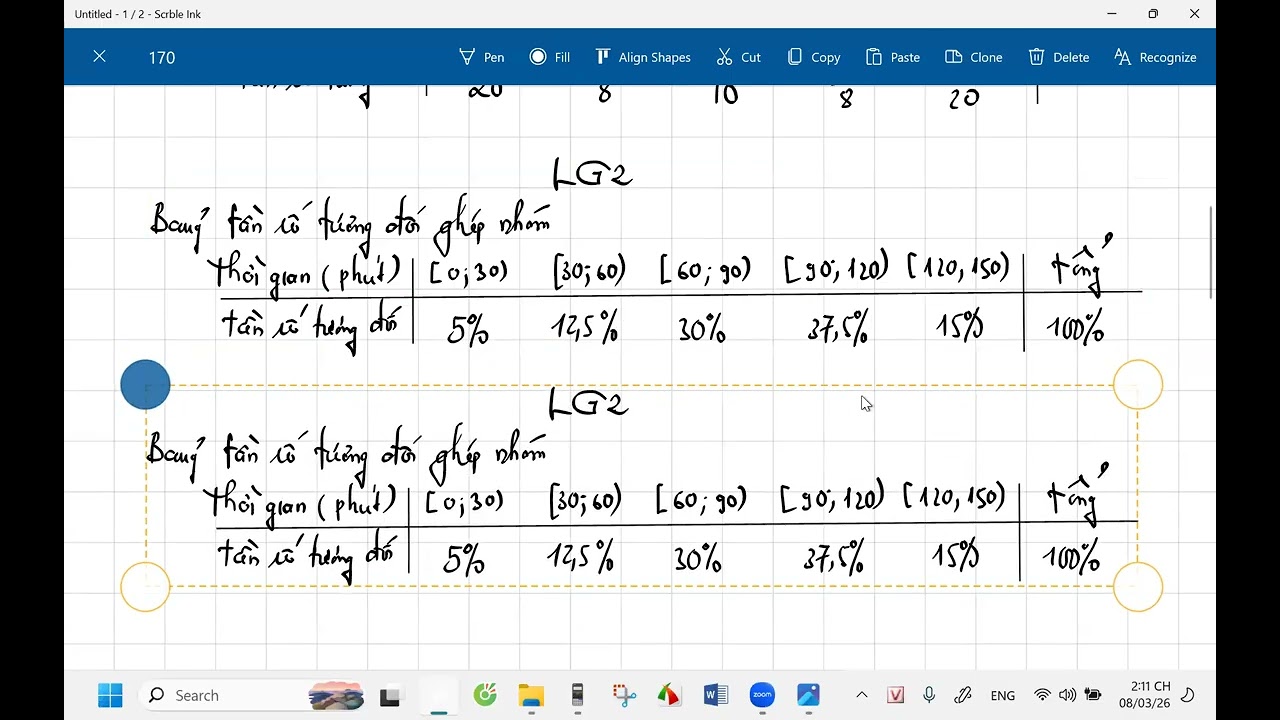 Untitled - 1 / 2 - Scrble Ink
170 Pen Fill Align Shapes Cut Copy Paste Clone Delete Recognize
20 8 10 8 20
LG2
Bảng tần số tương đối ghép nhóm
Thời gian (phút) [0; 30) [30; 60) [60; 90) [90; 120) [120, 150) tổng
tần số tương đối 5% 12,5% 30% 37,5% 15% 100%
LG2
Bảng tần số tương đối ghép nhóm
Thời gian (phút) [0; 30) [30; 60) [60; 90) [90; 120) [120, 150) tổng
tần số tương đối 5% 12,5% 30% 37,5% 15% 100%
Search zoom ENG 2:11 CH
08/03/26